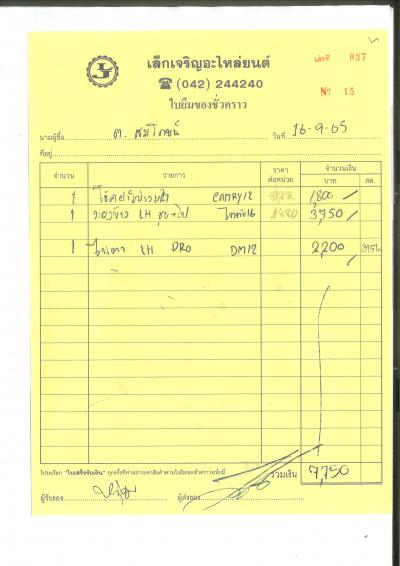 เล็กเจริญอะไหล่ยนต์
เล่มที่ 037
☎ (042) 244240
ใบยืมของชั่วคราว
Nº 15
นามผู้ซื้อ ต. สมโภชน์ วันที่ 16-9-65
ที่อยู่
จำนวน รายการ ราคาต่อหน่วย จำนวนเงิน บาท สต.
1 CAMRY12 1,800
1 LH 3,750
1 ไฟเตา LH DRO DM12 2,200
โปรดเรียก "ใบเสร็จรับเงิน" ทุกครั้งที่ท่านชำระค่าสินค้าตามใบยืมของชั่วคราวฉบับนี้ รวมเงิน 7,750
ผู้รับของ ผู้ส่งของ